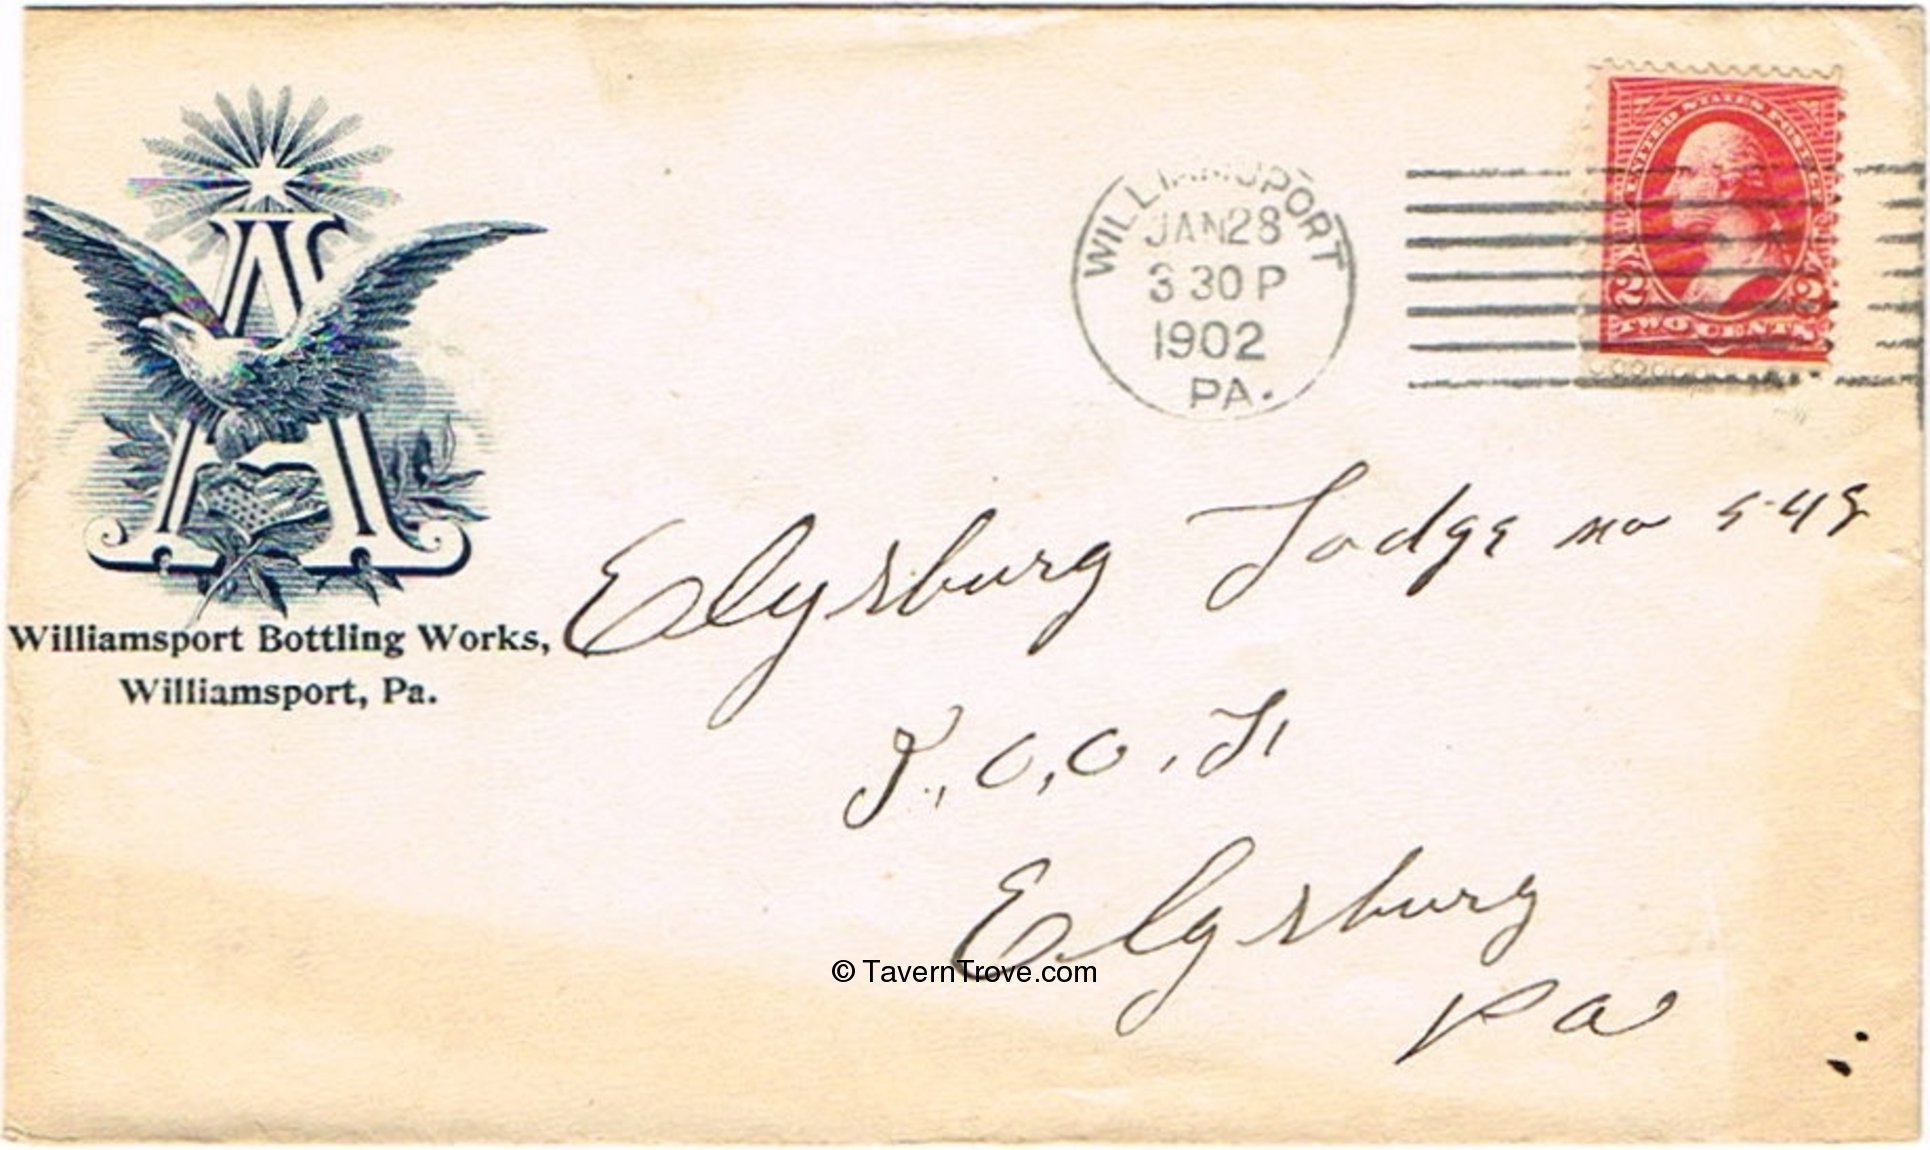 A
Williamsport Bottling Works,
Williamsport, Pa.
WILLIAMSPORT
JAN 28
3 30 P
1902
PA.
UNITED STATES POSTAGE
2 2
TWO CENTS
Elysburg Lodge no 548
I.O.O.F
Elysburg
Pa
© TavernTrove.com